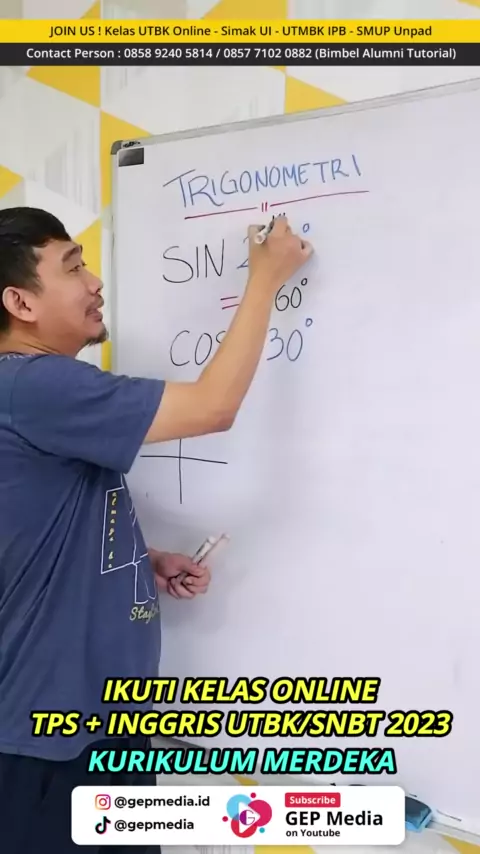 JOIN US ! Kelas UTBK Online - Simak UI - UTMBK IPB - SMUP Unpad
Contact Person : 0858 9240 5814 / 0857 7102 0882 (Bimbel Alumni Tutorial)
TRIGONOMETRI
SIN
= 60°
COS 30°
IKUTI KELAS ONLINE
TPS + INGGRIS UTBK/SNBT 2023
KURIKULUM MERDEKA
@gepmedia.id
@gepmedia
Subscribe
GEP Media
on Youtube